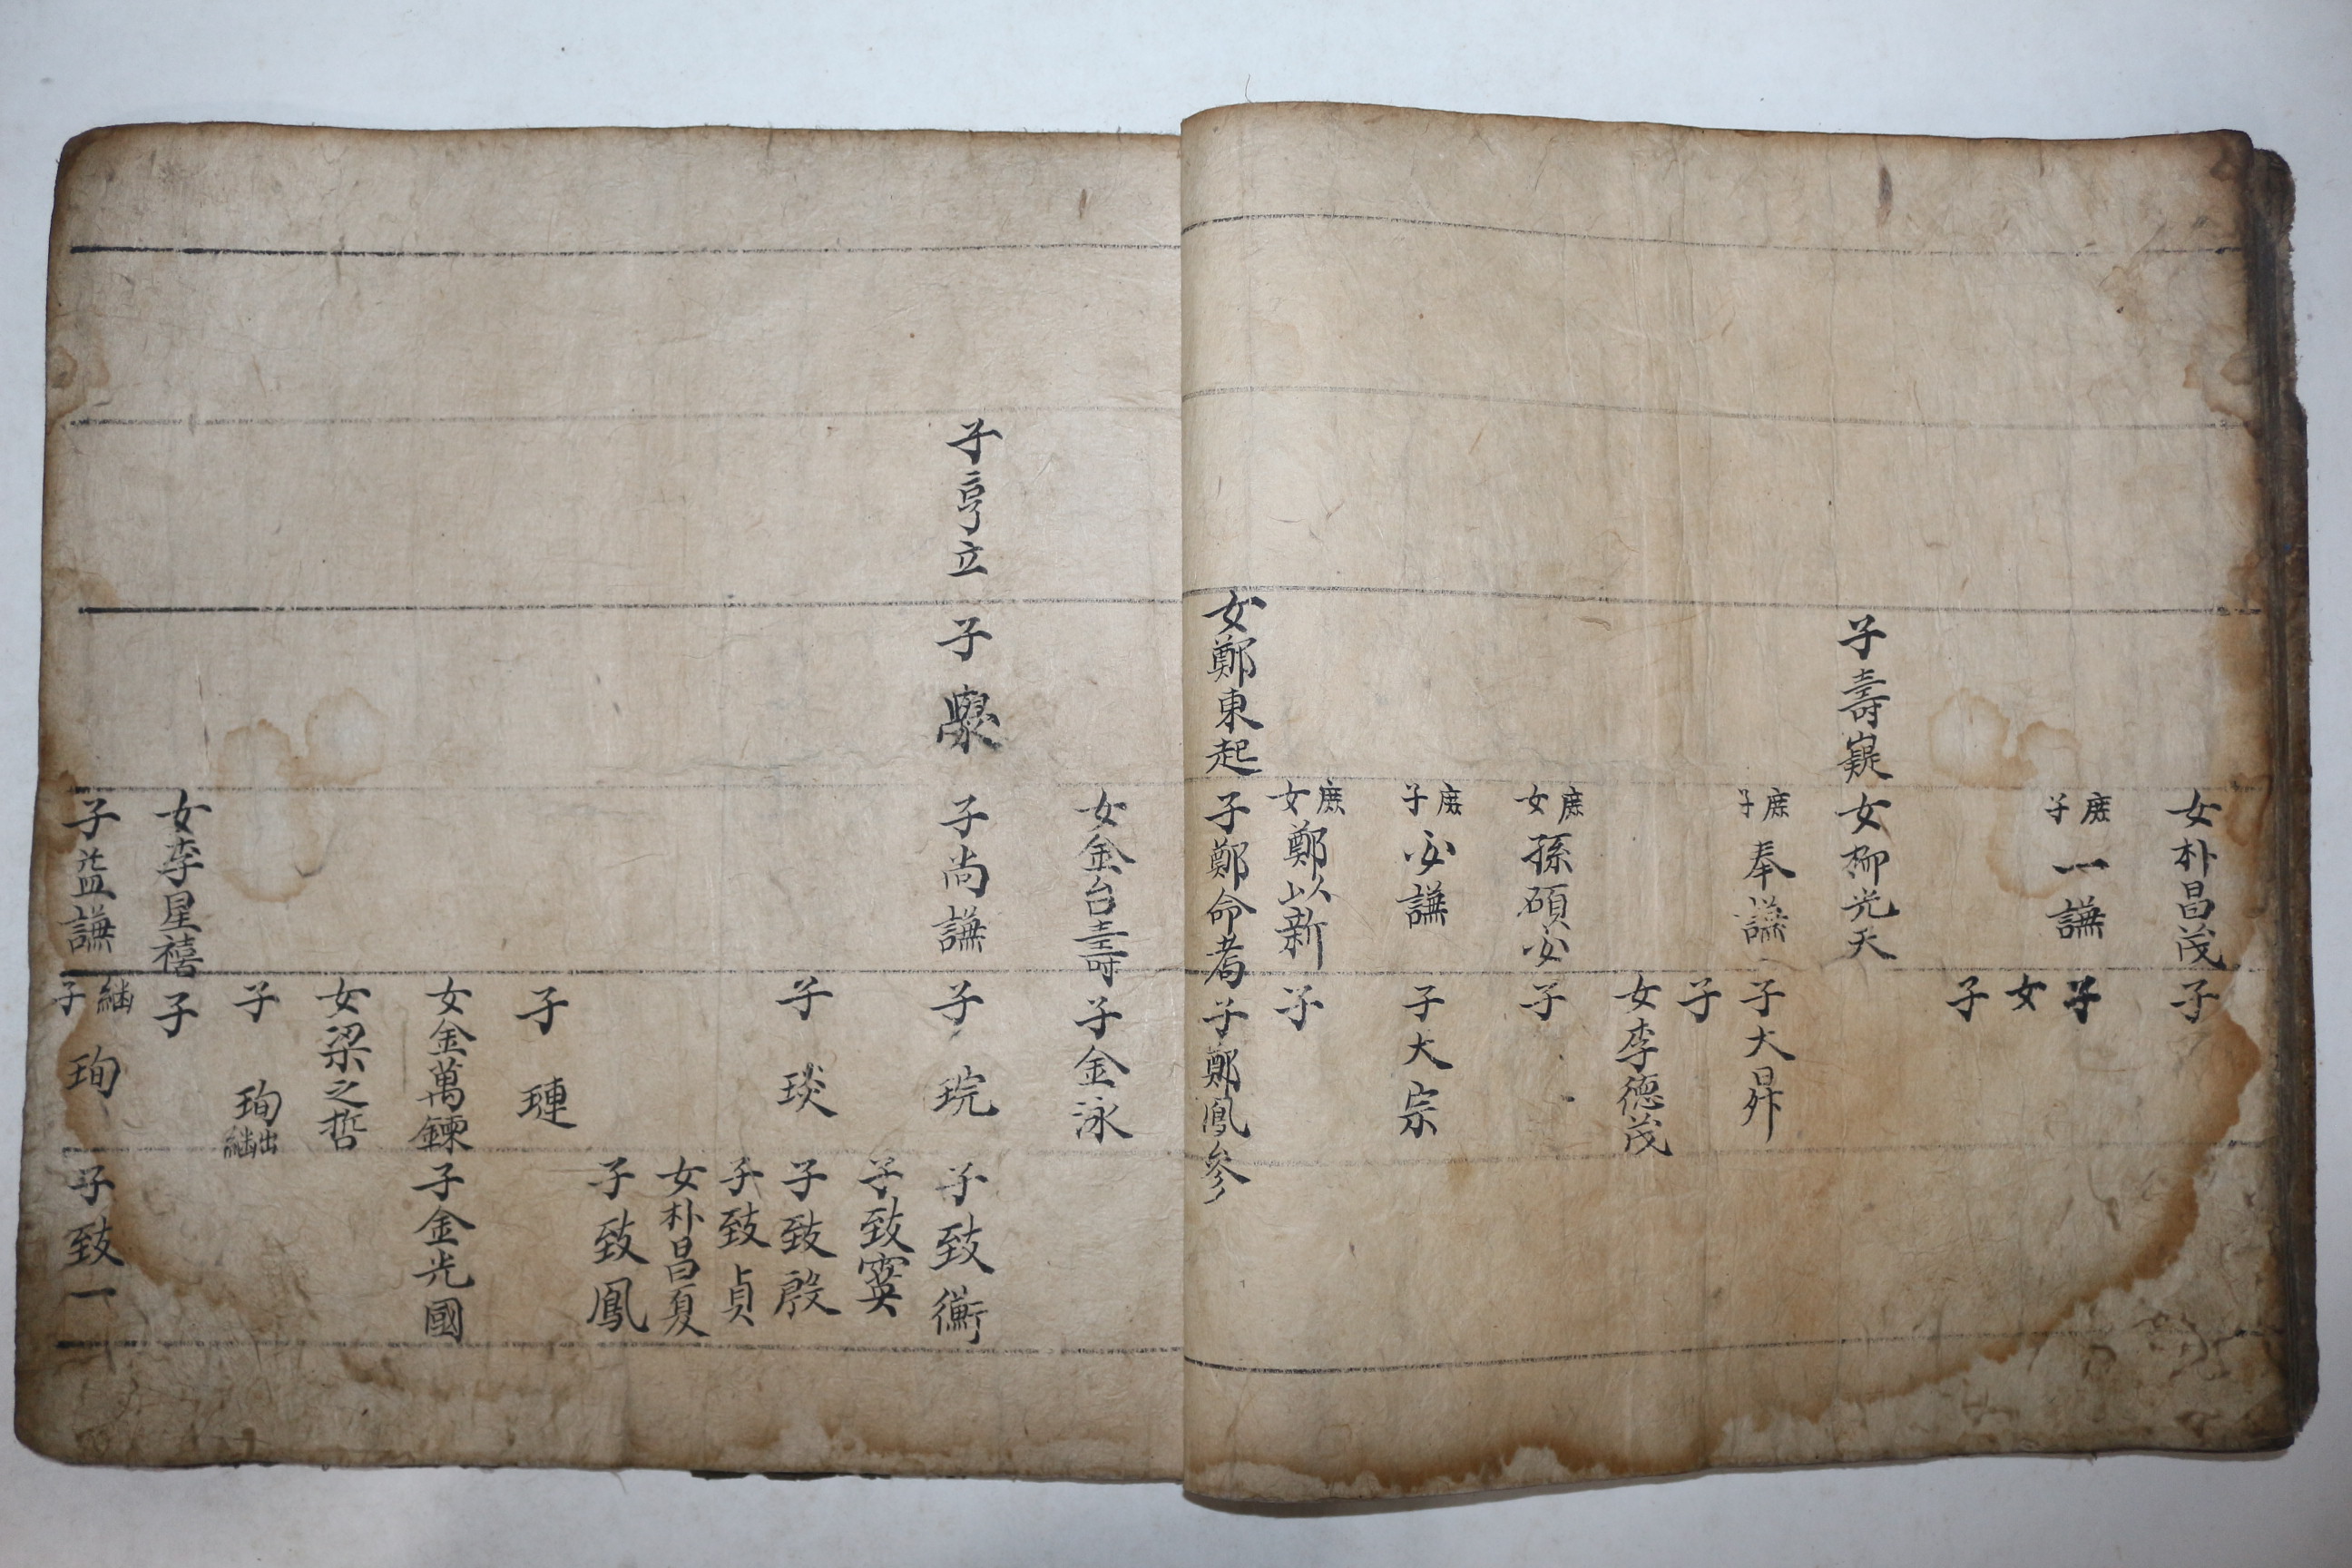 女朴昌茂
子
庶子一謙
子
女
子
子壽嶷
女柳光天
庶子奉謙
子大昇
子
女李德茂
庶女孫碩必
子
庶子必謙
子大宗
庶女鄭以新
子
女鄭東起
子鄭命耉
子鄭鳳參
女金台壽
子金泳
子亨立
子
子尚謙
子琓
子致衡
子致寞
子琰
子致殷
子致貞
女朴昌夏
子致鳳
子璉
女金萬鍊
子金光國
女梁之哲
子珣出繼
女李星禧
子
子益謙
繼子珣
子致一